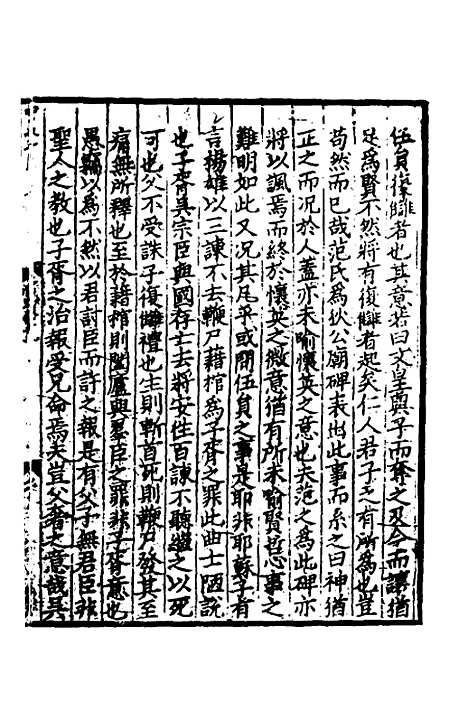 伍員復讎者也其意若曰文皇與子而奪之及今而讓猶
足為賢不然將有復讎者起矣仁人君子之有所為也豈
苟然而已哉范氏為狄公廟碑表出此事而系之曰神猶
正之而况於人蓋亦未喻懷英之意也夫范之為此碑亦
將以諷焉而終於懷英之微意猶有所未喻賢哲心事之
難明如此又况其凡乎或問伍員之事是耶非耶蘇子有
言楊雄以三諫不去鞭尸藉棺為子胥之罪此曲士陋說
也子胥吳宗臣與國存亡去將安往百諫不聽繼之以死
可也父不受誅子復讎禮也生則斬首死則鞭尸發其至
痛無所釋也至於藉棺則闔廬與羣臣之罪非子胥意也
愚竊以為不然以君討臣而許之報是有父子無君臣非
聖人之教也子胥之治報受兄命焉夫豈父奢之意哉吳